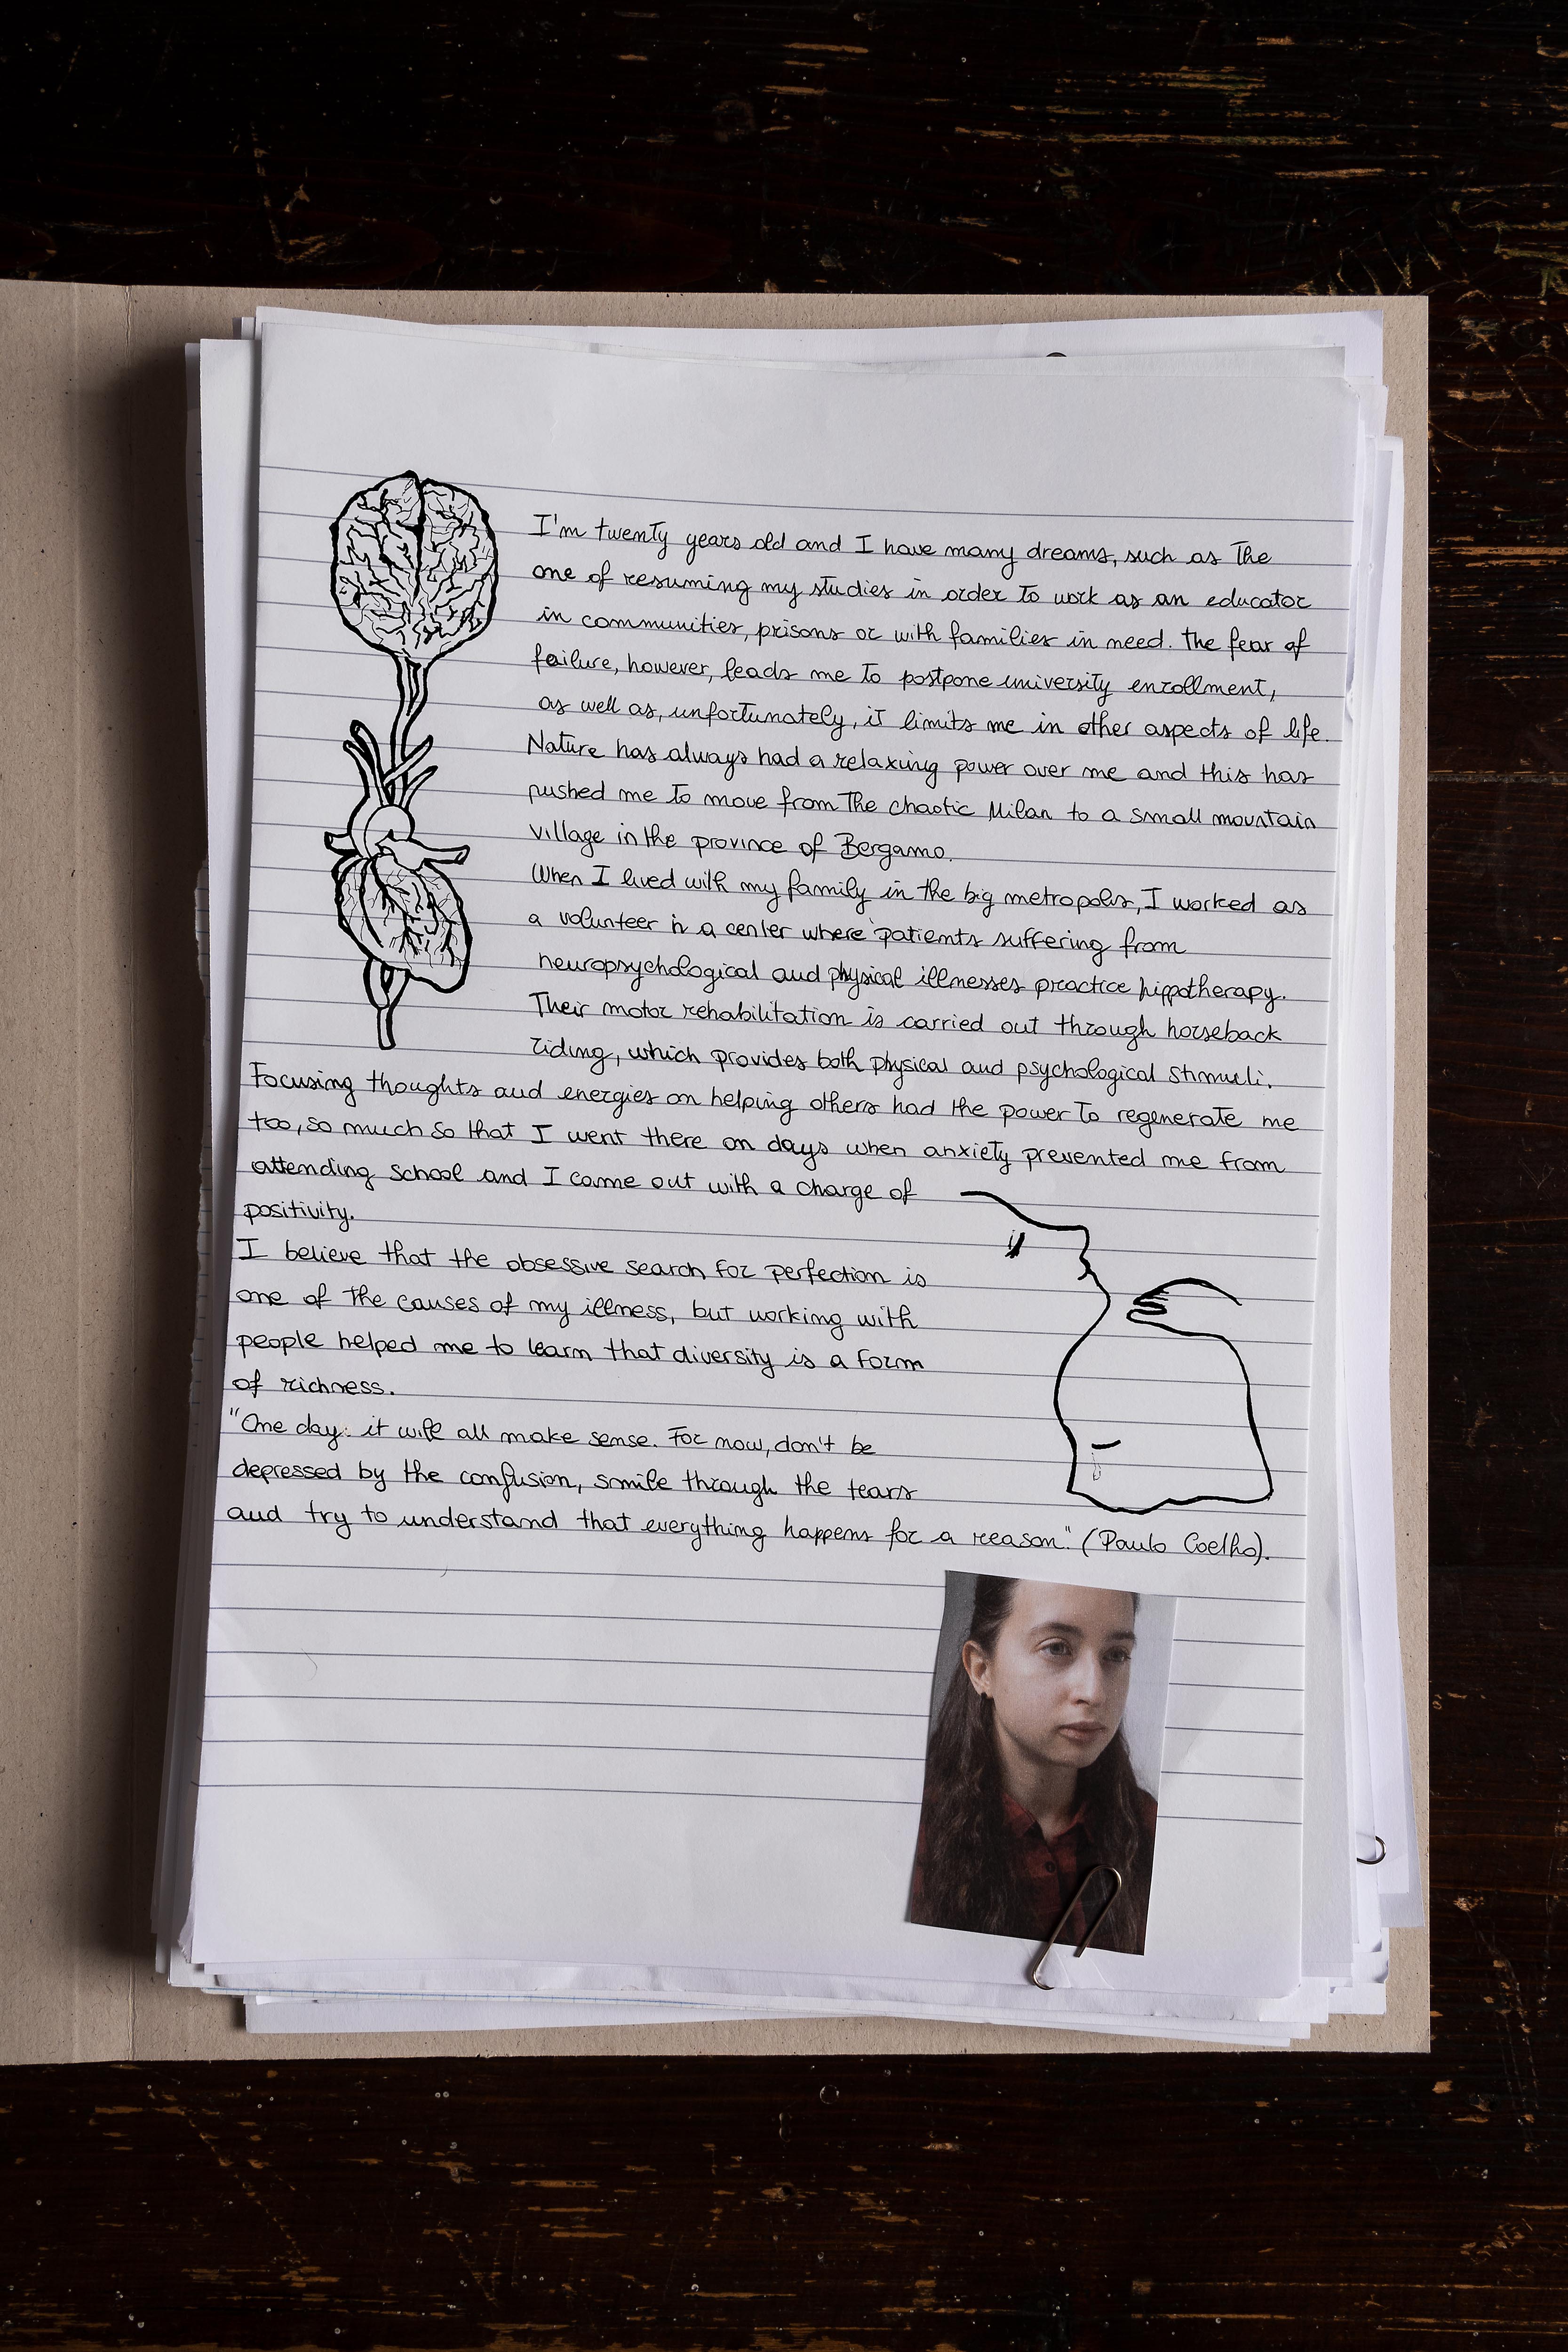 I'm twenty years old and I have many dreams, such as the
one of resuming my studies in order to work as an educator
in communities, prisons or with families in need. The fear of
failure, however, leads me to postpone university enrollment,
as well as, unfortunately, it limits me in other aspects of life.
Nature has always had a relaxing power over me and this has
pushed me to move from the chaotic Milan to a small mountain
village in the province of Bergamo.
When I lived with my family in the big metropolis, I worked as
a volunteer in a center where patients suffering from
neuropsychological and physical illnesses practice hippotherapy.
Their motor rehabilitation is carried out through horseback
riding, which provides both physical and psychological stimuli.
Focusing thoughts and energies on helping others had the power to regenerate me
too, so much so that I went there on days when anxiety prevented me from
attending school and I came out with a charge of
positivity.
I believe that the obsessive search for perfection is
one of the causes of my illness, but working with
people helped me to learn that diversity is a form
of richness.
"One day: it will all make sense. For now, don't be
depressed by the confusion, smile through the tears
and try to understand that everything happens for a reason." (Paulo Coelho).